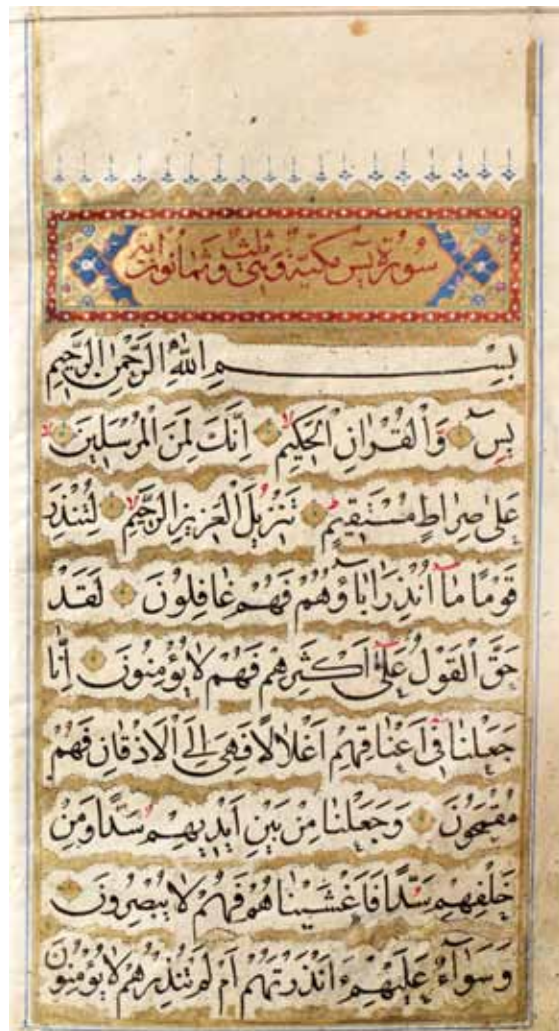 سورة يس مكية وهي ثلث وثمانون اية
بِسْمِ اللّٰهِ الرَّحْمٰنِ الرَّحِيمِ
يٰسٓ وَالْقُرْاٰنِ الْحَكِيمِ اِنَّكَ لَمِنَ الْمُرْسَلِينَ
عَلٰى صِرَاطٍ مُسْتَقِيمٍ تَنْزِيلَ الْعَزِيزِ الرَّحِيمِ لِتُنْذِرَ
قَوْمًا مَٓا اُنْذِرَ اٰبَٓاؤُهُمْ فَهُمْ غَافِلُونَ لَقَدْ
حَقَّ الْقَوْلُ عَلٰٓى اَكْثَرِهِمْ فَهُمْ لَا يُؤْمِنُونَ اِنَّا
جَعَلْنَا فٓى اَعْنَاقِهِمْ اَغْلَالًا فَهِىَ اِلَى الْاَذْقَانِ فَهُمْ
مُقْمَحُونَ وَجَعَلْنَا مِنْ بَيْنِ اَيْدِيهِمْ سَدًّا وَمِنْ
خَلْفِهِمْ سَدًّا فَاَغْشَيْنَاهُمْ فَهُمْ لَا يُبْصِرُونَ
وَسَوَٓاءٌ عَلَيْهِمْ ءَاَنْذَرْتَهُمْ اَمْ لَمْ تُنْذِرْهُمْ لَا يُؤْمِنُونَ